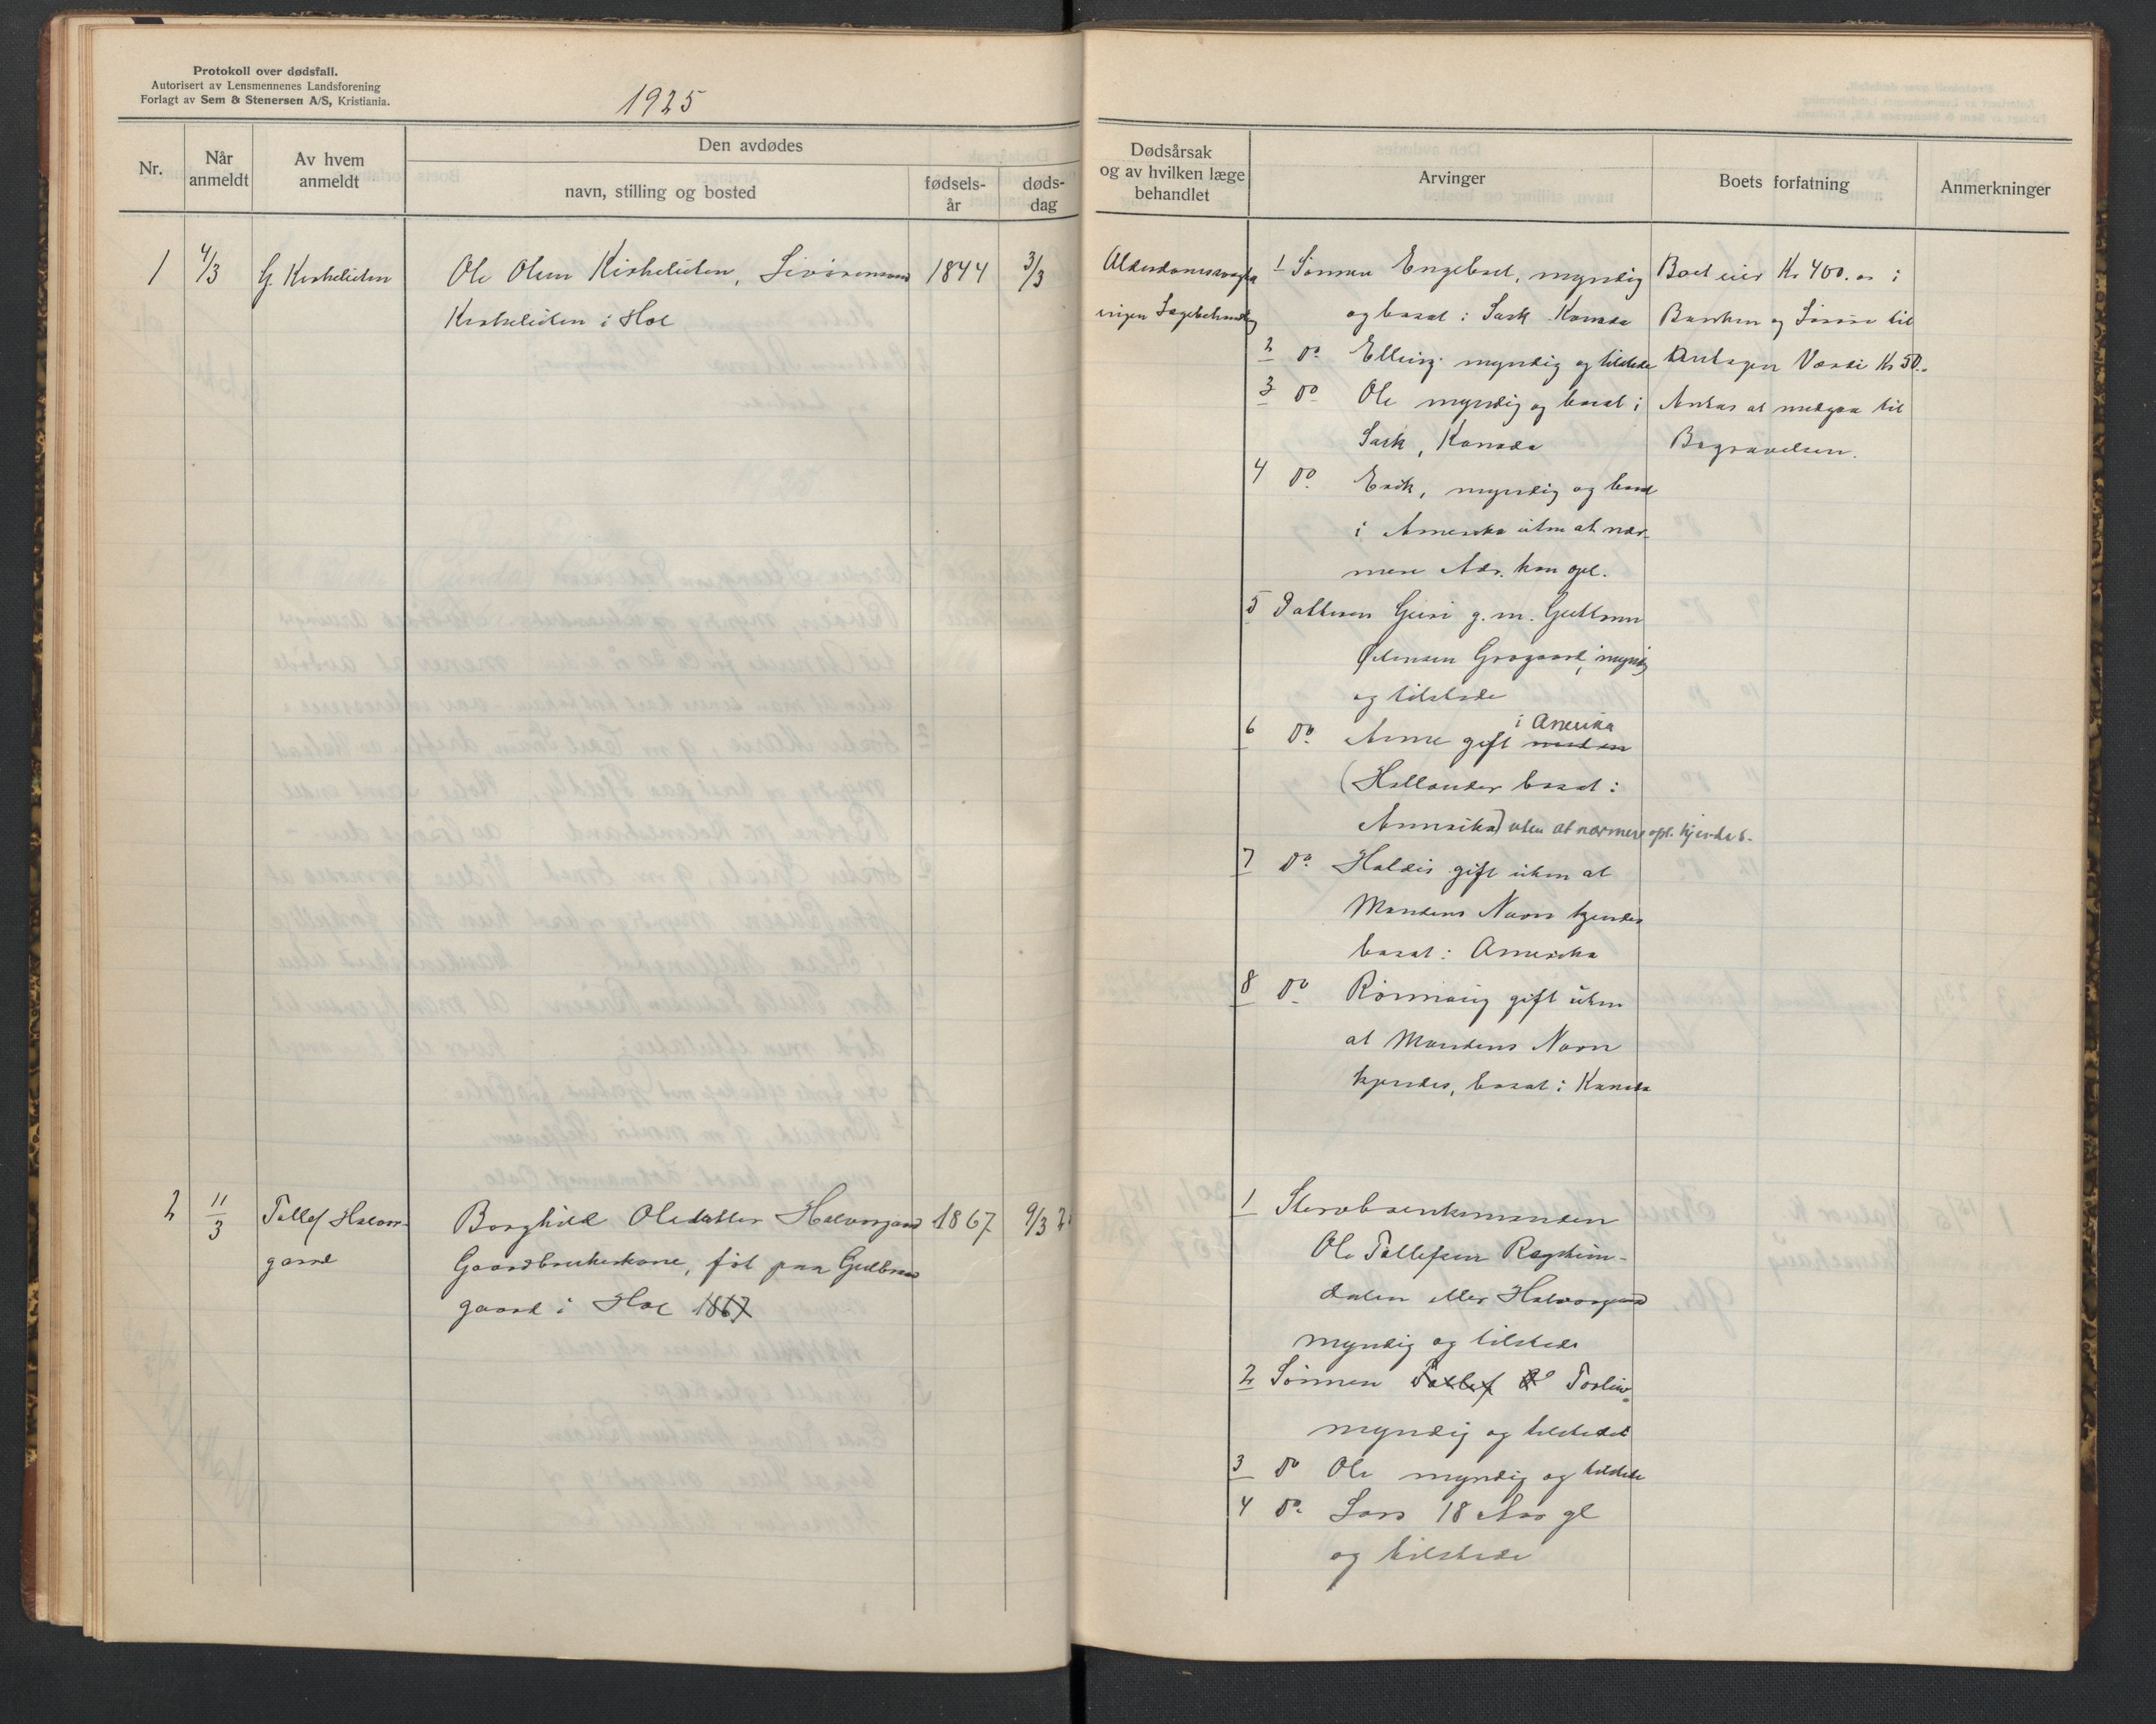 Protokoll over dødsfall.
Autorisert av Lensmennenes Landsforening
Forlagt av Sem & Stenersen A/S, Kristiania.
1925
Nr.
Når anmeldt
Av hvem anmeldt
Den avdødes
navn, stilling og bosted
fødsels-år
døds-dag
Dødsårsak og av hvilken læge behandlet
Arvinger
Boets forfatning
Anmerkninger
1 4/3 G. Kirkelieten Ole Olsen Kirkelieten, 1844 3/3
Kirkelieten i Hol
ingen Lægebehandling
1 Sønnen Engebret, myndig
og bosat i Sask Kanada
2 do Elling myndig og tilstede
3 do Ole myndig og bosat i
Sask, Kanada
4 do Erik, myndig og bosat
i Amerika uten at nær-
mere Adr. kan opl.
5 Datteren Guri g. m. Guttorm
Grøgaard, myndig
og tilstede
6 do Anne gift i Amerika
(Hollænder bosat i
Amerika) uten at nærmere opl. kjendes.
7 do Haldis gift uten at
Mandens Navn kjendes
bosat i Amerika
8 do Rønnaug gift uten
at Mandens Navn
kjendes, bosat i Kanada
Boet eier Kr 400.00 i
Banken og Løsøre til
Antagen Værdi Kr 50.-
Antas at medgaa til
Begravelsen.
2 11/3 Tollef Halvor- Borghild Olsdatter Halvorgaard 1867 9/3 25
gaard Gaardbrukerkone, føt paa Gulbrands
gaard i Hol 1867
1 Stervboenkemanden
Ole Tollefsen Rogstein-
dalen eller Halvorgaard
myndig og tilstede
2 Sønnen Tollef do Torleiv
myndig og tilstede
3 do Ole myndig og tilstede
4 do Lars 18 Aar gl
og tilstede